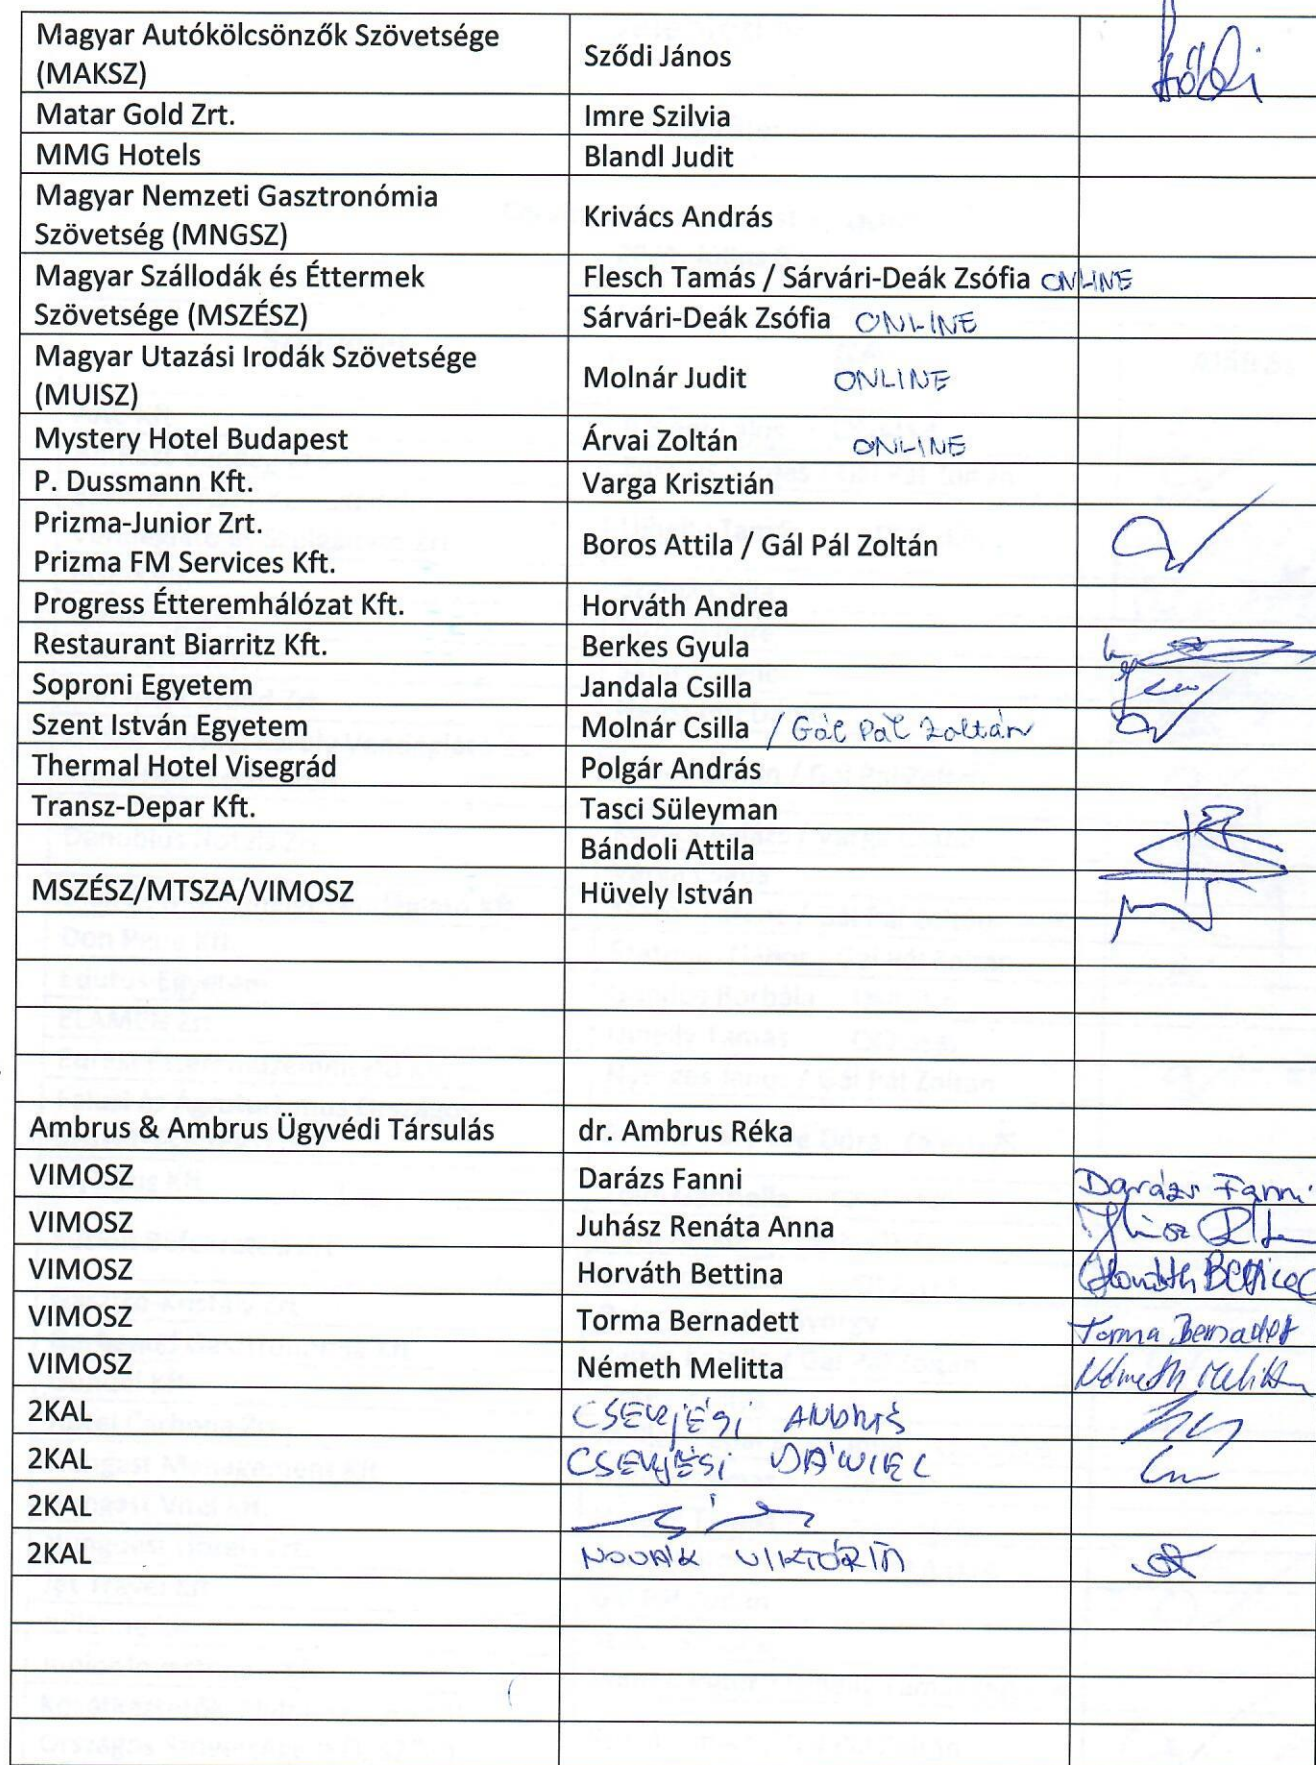 Magyar Autókölcsönzők Szövetsége
(MAKSZ)
Sződi János
Matar Gold Zrt.
Imre Szilvia
MMG Hotels
Blandl Judit
Magyar Nemzeti Gasztronómia
Szövetség (MNGSZ)
Krivács András
Magyar Szállodák és Éttermek
Szövetsége (MSZÉSZ)
Flesch Tamás / Sárvári-Deák Zsófia ONLINE
Sárvári-Deák Zsófia ONLINE
Magyar Utazási Irodák Szövetsége
(MUISZ)
Molnár Judit ONLINE
Mystery Hotel Budapest
Árvai Zoltán ONLINE
P. Dussmann Kft.
Varga Krisztián
Prizma-Junior Zrt.
Prizma FM Services Kft.
Boros Attila / Gál Pál Zoltán
Progress Étteremhálózat Kft.
Horváth Andrea
Restaurant Biarritz Kft.
Berkes Gyula
Soproni Egyetem
Jandala Csilla
Szent István Egyetem
Molnár Csilla / Gál Pál Zoltán
Thermal Hotel Visegrád
Polgár András
Transz-Depar Kft.
Tasci Süleyman
Bándoli Attila
MSZÉSZ/MTSZA/VIMOSZ
Hüvely István
Ambrus & Ambrus Ügyvédi Társulás
dr. Ambrus Réka
VIMOSZ
Darázs Fanni
Darázs Fanni
VIMOSZ
Juhász Renáta Anna
VIMOSZ
Horváth Bettina
Horváth Bettina
VIMOSZ
Torma Bernadett
Torma Bernadett
VIMOSZ
Németh Melitta
Németh Melitta
2KAL
2KAL
2KAL
2KAL
NOVÁK VIKTÓRIA